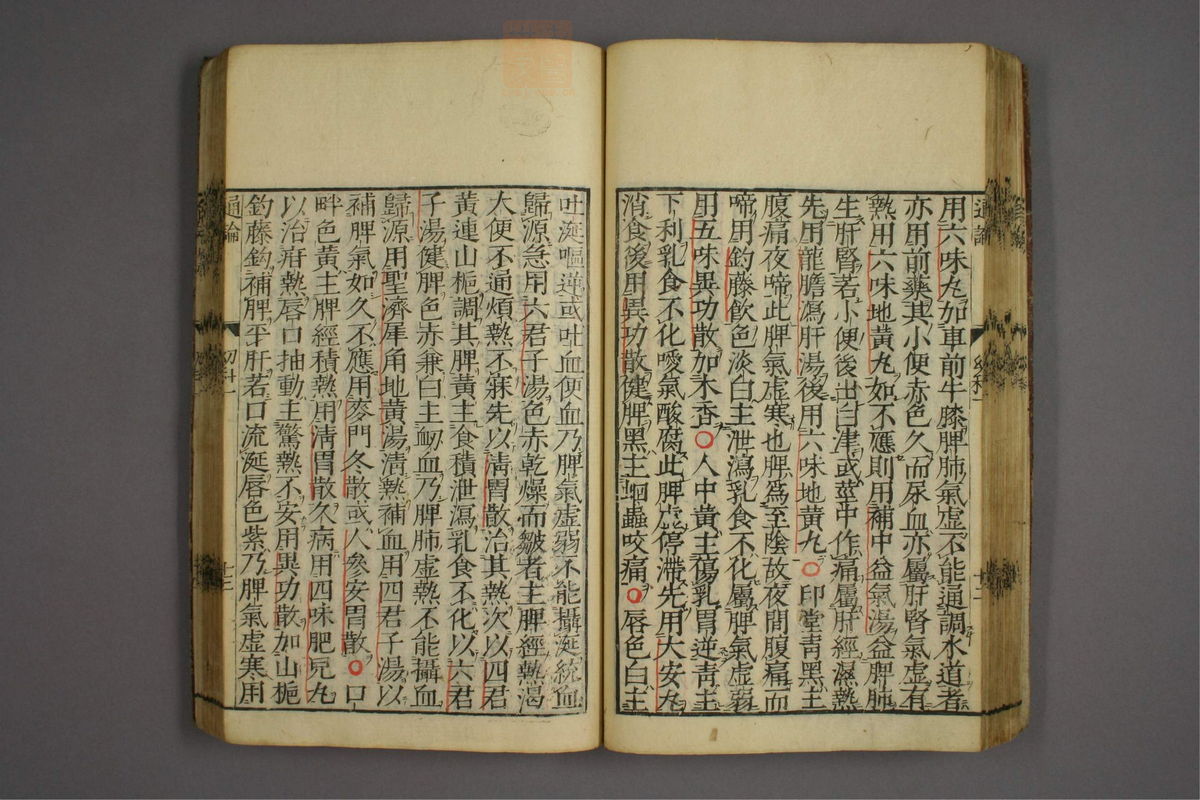 用六味丸加車前牛膝脾肺氣虛不能通調水道者
亦用前藥其小便赤色久而尿血亦屬肝腎氣虛有
熱用六味地黃丸如不應則用補中益氣湯益脾肺
生肝腎若小便後出白津或莖中作痛屬肝經濕熱
先用龍膽瀉肝湯後用六味地黃丸○印堂青黑主
腹痛夜啼此脾氣虛寒也脾爲至陰故夜間腹痛而
啼用釣藤飲色淡白主泄瀉乳食不化屬脾氣虛弱
用五味異功散加木香○人中黃主傷乳胃逆青主
下利乳食不化噯氣酸腐此脾虛停滯先用大安丸
消食後用異功散健脾黑主蛔蟲咬痛○唇色白主
吐涎嘔逆或吐血便血乃脾氣虛弱不能攝涎統血
歸源急用六君子湯色赤乾燥而皺者主脾經熱渴
大便不通煩熱不寐先以清胃散治其熱次以四君
黃連山梔調其脾黃主食積泄瀉乳食不化以六君
子湯健脾色赤兼白主衂血乃脾肺虛熱不能攝血
歸源用聖濟犀角地黃湯清熱補血用四君子湯以
補脾氣如久不應用麥門冬散或人參安胃散○口
畔色黃主脾經積熱用清胃散久病用四味肥兒丸
以治疳熱唇口抽動主驚熱不安用異功散加山梔
釣藤鈎補脾平肝若口流涎唇色紫乃脾氣虛寒用
通論
幼科一
十三